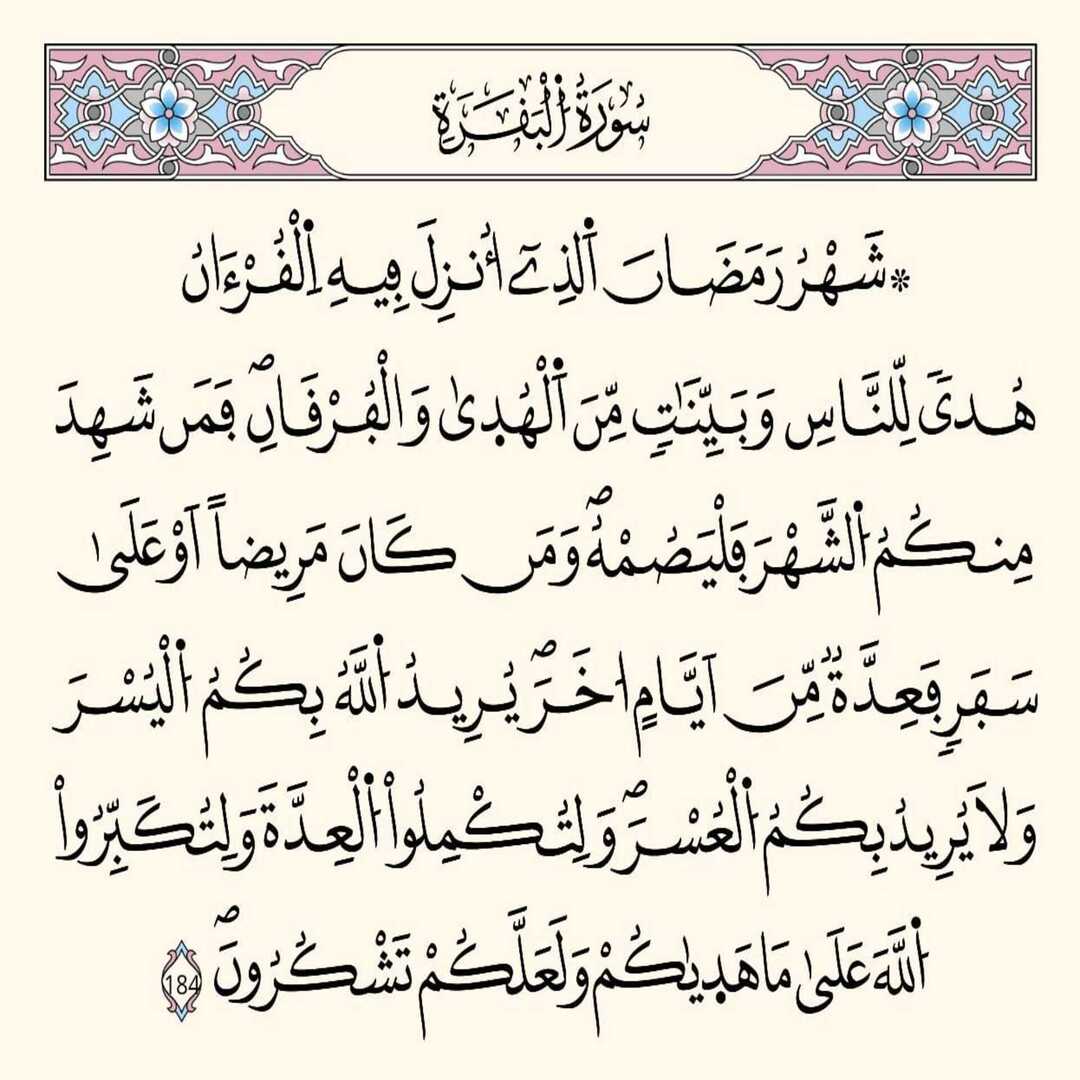 سُورَةُ اُ۬لْبَقَرَةِ
* شَهْرُ رَمَضَانَ اَ۬لذِےٓ أُنزِلَ فِيهِ اِ۬لْقُرْءَانُ
هُدىٗ لِّلنَّاسِ وَبَيِّنَٰتٖ مِّنَ اَ۬لْهُد۪ىٰ وَالْفُرْقَانِۖ فَمَن شَهِدَ
مِنكُمُ اُ۬لشَّهْرَ فَلْيَصُمْهُۖ وَمَن كَانَ مَرِيضاً اَوْ عَلَىٰ
سَفَرٖ فَعِدَّةٞ مِّنَ اَيَّامٍ اُخَرَۖ يُرِيدُ اُ۬للَّهُ بِكُمُ اُ۬لْيُسْرَ
وَلَا يُرِيدُ بِكُمُ اُ۬لْعُسْرَۖ وَلِتُكْمِلُواْ اُ۬لْعِدَّةَ وَلِتُكَبِّرُواْ
اُ۬للَّهَ عَلَىٰ مَا هَد۪يٰكُمْ وَلَعَلَّكُمْ تَشْكُرُونَۖ 184